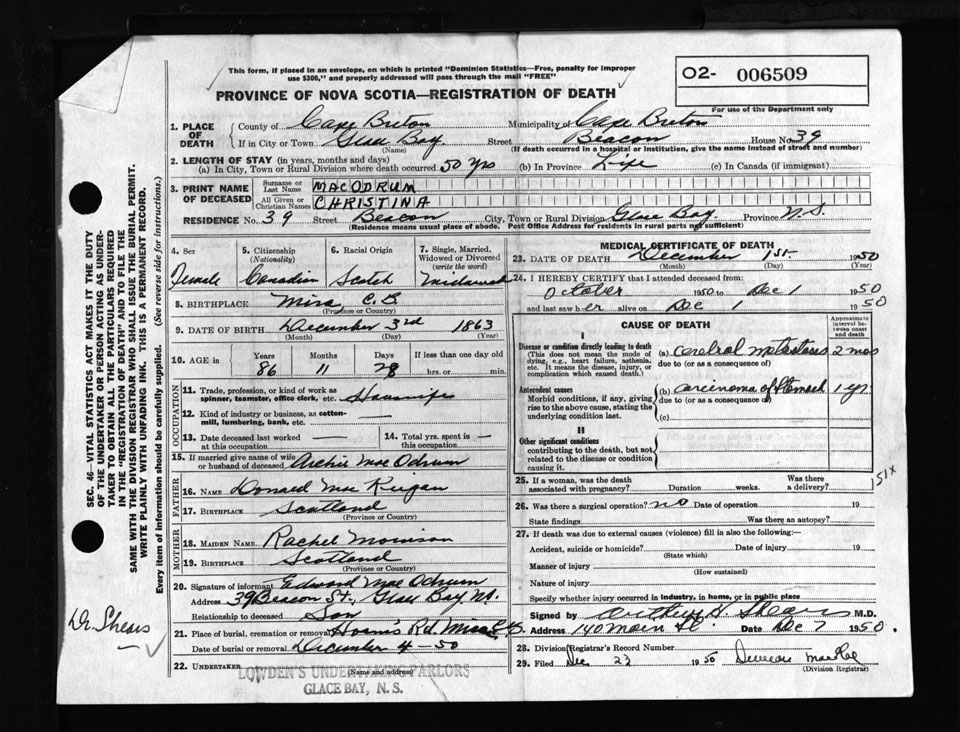 This form, if placed in an envelope, on which is printed "Dominion Statistics—Free, penalty for improper
use $300," and properly addressed will pass through the mail "FREE"
O2- 006509
For use of the Department only
PROVINCE OF NOVA SCOTIA—REGISTRATION OF DEATH
1. PLACE OF DEATH
County of Cape Breton Municipality of Cape Breton
If in City or Town Glace Bay (Name) Street Beacon House No. 39
(If death occurred in a hospital or institution, give the name instead of street and number)
2. LENGTH OF STAY (in years, months and days)
(a) In City, Town or Rural Division where death occurred 50 yrs (b) In Province Life (c) In Canada (if immigrant)
3. PRINT NAME OF DECEASED
Surname or Last Name MACODRUM
All Given or Christian Names CHRISTINA
RESIDENCE No. 39 Street Beacon City, Town or Rural Division Glace Bay Province N.S.
(Residence means usual place of abode. Post Office Address for residents in rural parts not sufficient)
4. Sex Female
5. Citizenship (Nationality) Canadin
6. Racial Origin Scotch
7. Single, Married, Widowed or Divorced (write the word)
8. BIRTHPLACE Mira C.B
(Province or Country)
9. DATE OF BIRTH December 3rd 1863
(Month) (Day) (Year)
10. AGE in Years 86 Months 11 Days 28 If less than one day old hrs. or min.
OCCUPATION
11. Trade, profession, or kind of work as spinner, teamster, office clerk, etc. Housewife
12. Kind of industry or business, as cotton-mill, lumbering, bank, etc. —
13. Date deceased last worked at this occupation — 14. Total yrs. spent in this occupation —
15. If married give name of wife or husband of deceased Archie MacOdrum
FATHER
16. NAME Donald Mac
17. BIRTHPLACE Scotland
(Province or Country)
MOTHER
18. MAIDEN NAME. Rachel Morrison
19. BIRTHPLACE Scotland
(Province or Country)
20. Signature of informant Edward MacOdrum
Address 39 Beacon St., Glace Bay N.
Relationship to deceased Son
21. Place of burial, cremation or removal Rd.
Date of burial or removal December 4-50
22. UNDERTAKER
(Name and address)
LOWDEN'S UNDERTAKING PARLORS
GLACE BAY, N. S.
MEDICAL CERTIFICATE OF DEATH
23. DATE OF DEATH December 1st. 1950
(Month) (Day) (Year)
24. I HEREBY CERTIFY that I attended deceased from:
October 1950 to Dec 1 1950
and last saw her alive on Dec 1 1950
CAUSE OF DEATH
Approximate interval between onset and death
I
Disease or condition directly leading to death
(This does not mean the mode of dying, e.g., heart failure, asthenia, etc. It means the disease, injury, or complication which caused death.)
(a) cerebral metastases 2 mos
due to (or as a consequence of)
Antecedent causes
Morbid conditions, if any, giving rise to the above cause, stating the underlying condition last.
(b) carcinoma of stomach 1 yr.
due to (or as a consequence of)
(c)
II
Other significant conditions
contributing to the death, but not related to the disease or condition causing it.
25. If a woman, was the death associated with pregnancy? Duration weeks. Was there a delivery?
151X
26. Was there a surgical operation? no Date of operation 19
State findings Was there an autopsy?
27. If death was due to external causes (violence) fill in also the following:—
Accident, suicide or homicide? (State which) Date of injury 19
Manner of injury
(How sustained)
Nature of injury
Specify whether injury occurred in industry, in home, or in public place
Signed by Arthur H. Shears M.D.
Address 140 Main St Date Dec 7 1950.
28. Division Registrar's Record Number
29. Filed Dec. 23 1950 Duncan MacRae
(Division Registrar)
SEC. 46—VITAL STATISTICS ACT MAKES IT THE DUTY
OF THE UNDERTAKER OR PERSON ACTING AS UNDER-
TAKER TO OBTAIN ALL THE PARTICULARS REQUIRED
IN THE "REGISTRATION OF DEATH" AND TO FILE THE
SAME WITH THE DIVISION REGISTRAR WHO SHALL ISSUE THE BURIAL PERMIT.
WRITE PLAINLY WITH UNFADING INK. THIS IS A PERMANENT RECORD.
Every item of information should be carefully supplied. (See reverse side for instructions.)
Dr. Shears